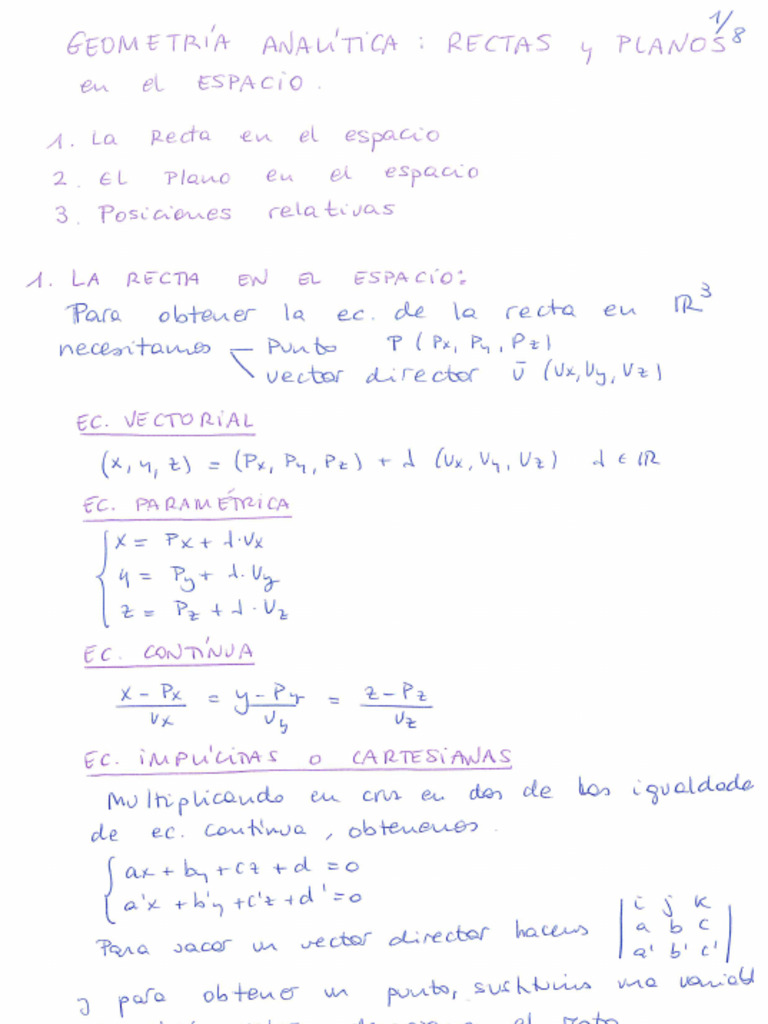 1/8
GEOMETRÍA ANALÍTICA : RECTAS y PLANOS
en el ESPACIO.
1. La Recta en el espacio
2. El Plano en el espacio
3. Posiciones relativas
1. LA RECTA EN EL ESPACIO:
Para obtener la ec. de la recta en ℝ³
necesitamos — Punto P (Px, Py, Pz)
\ vector director v̄ (Vx, Vy, Vz)
EC. VECTORIAL
(x, y, z) = (Px, Py, Pz) + λ (Vx, Vy, Vz) λ ∈ ℝ
EC. PARAMÉTRICA
x = Px + λ·Vx
y = Py + λ·Vy
z = Pz + λ·Vz
EC. CONTÍNUA
(x - Px)/Vx = (y - Py)/Vy = (z - Pz)/Vz
EC. IMPLÍCITAS o CARTESIANAS
Multiplicando en cruz en dos de las igualdade
de ec. contínua, obtenemos.
ax + by + cz + d = 0
a'x + b'y + c'z + d' = 0
Para sacar un vector director hacems | i j k |
| a b c |
| a' b' c' |
y para obtener un punto, sustituims una variabl